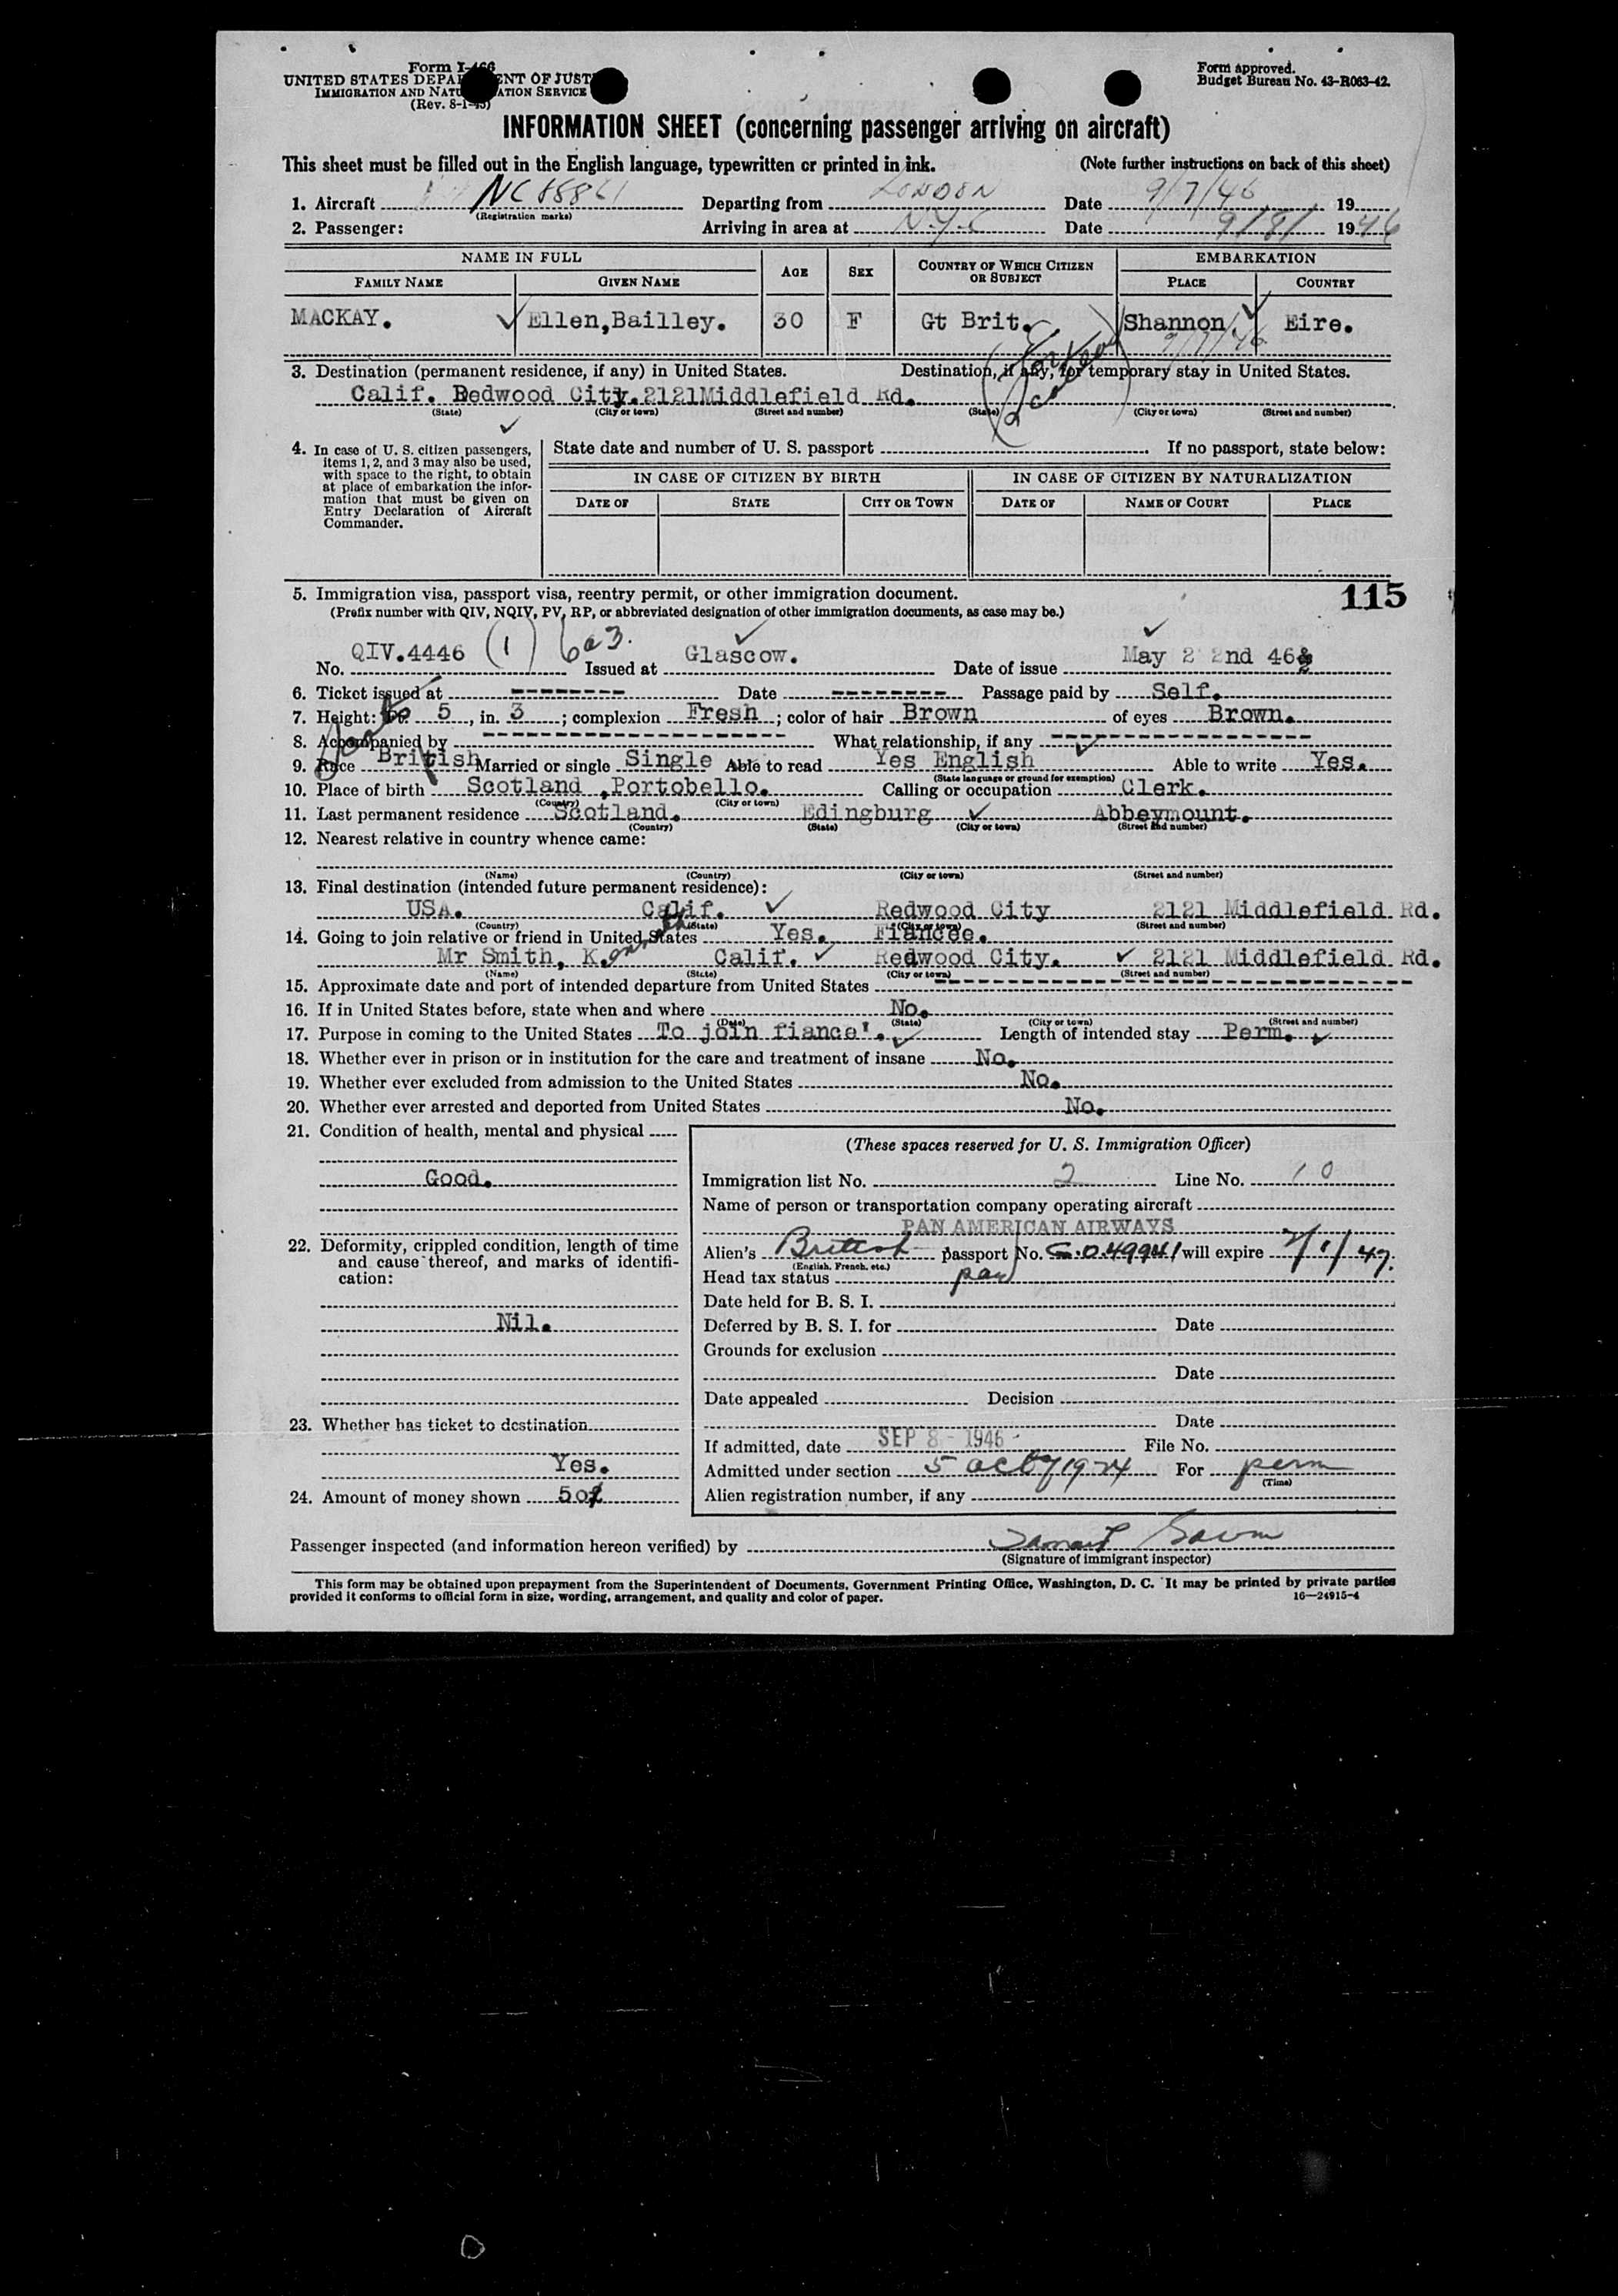 Form I-466
UNITED STATES DEPARTMENT OF JUSTICE
IMMIGRATION AND NATURALIZATION SERVICE
(Rev. 8-1-45)
Form approved.
Budget Bureau No. 43-R063-42.
INFORMATION SHEET (concerning passenger arriving on aircraft)
This sheet must be filled out in the English language, typewritten or printed in ink. (Note further instructions on back of this sheet)
1. Aircraft NC88861 Departing from LONDON Date 9/7/46, 19
(Registration marks)
2. Passenger: Arriving in area at N.Y.C Date 9/8/ 1946
NAME IN FULL AGE SEX COUNTRY OF WHICH CITIZEN OR SUBJECT EMBARKATION
FAMILY NAME GIVEN NAME PLACE COUNTRY
MACKAY. Ellen,Bailley. 30 F Gt Brit. Shannon. Eire.
9/7/46
3. Destination (permanent residence, if any) in United States. Destination, if any, for temporary stay in United States.
Calif. Redwood City.2121Middlefield Rd.
(State) (City or town) (Street and number) (State) (City or town) (Street and number)
4. In case of U. S. citizen passengers, items 1, 2, and 3 may also be used, with space to the right, to obtain at place of embarkation the information that must be given on Entry Declaration of Aircraft Commander.
State date and number of U. S. passport If no passport, state below:
IN CASE OF CITIZEN BY BIRTH IN CASE OF CITIZEN BY NATURALIZATION
DATE OF STATE CITY OR TOWN DATE OF NAME OF COURT PLACE
5. Immigration visa, passport visa, reentry permit, or other immigration document. 115
(Prefix number with QIV, NQIV, PV, RP, or abbreviated designation of other immigration documents, as case may be.)
No. QIV.4446 (1) 6a3. Issued at Glascow. Date of issue May 2 2nd 46
6. Ticket issued at -------- Date -------- Passage paid by Self.
7. Height: ft. 5, in. 3; complexion Fresh; color of hair Brown of eyes Brown.
8. Accompanied by -------------------- What relationship, if any --------------------
9. Race British Married or single Single Able to read Yes English Able to write Yes.
(State language or ground for exemption)
10. Place of birth Scotland ,Portobello. Calling or occupation Clerk.
(Country) (City or town)
11. Last permanent residence Scotland. Edingburg Abbeymount.
(Country) (State) (City or town) (Street and number)
12. Nearest relative in country whence came:
(Name) (Country) (City or town) (Street and number)
13. Final destination (intended future permanent residence):
USA. Calif. Redwood City 2121 Middlefield Rd.
(Country) (State) (City or town) (Street and number)
14. Going to join relative or friend in United States Yes. Fiancee.
Mr Smith, K. Calif. Redwood City. 2121 Middlefield Rd.
(Name) (State) (City or town) (Street and number)
15. Approximate date and port of intended departure from United States --------------------
16. If in United States before, state when and where No.
(Date) (State) (City or town) (Street and number)
17. Purpose in coming to the United States To join fiance'. Length of intended stay Perm.
18. Whether ever in prison or in institution for the care and treatment of insane No.
19. Whether ever excluded from admission to the United States No.
20. Whether ever arrested and deported from United States No.
21. Condition of health, mental and physical
Good.
22. Deformity, crippled condition, length of time and cause thereof, and marks of identification:
Nil.
23. Whether has ticket to destination
Yes.
24. Amount of money shown 50
(These spaces reserved for U. S. Immigration Officer)
Immigration list No. 2 Line No. 10
Name of person or transportation company operating aircraft
PAN AMERICAN AIRWAYS
Alien's British passport No. C.0.49941 will expire 2/1/47.
(English, French, etc.)
Head tax status paid
Date held for B. S. I.
Deferred by B. S. I. for Date
Grounds for exclusion
Date
Date appealed Decision
Date
If admitted, date SEP 8 - 1946 File No.
Admitted under section 5 act of 1924 For perm
(Time)
Alien registration number, if any
Passenger inspected (and information hereon verified) by
(Signature of immigrant inspector)
This form may be obtained upon prepayment from the Superintendent of Documents, Government Printing Office, Washington, D. C. It may be printed by private parties
provided it conforms to official form in size, wording, arrangement, and quality and color of paper. 16—24915-4